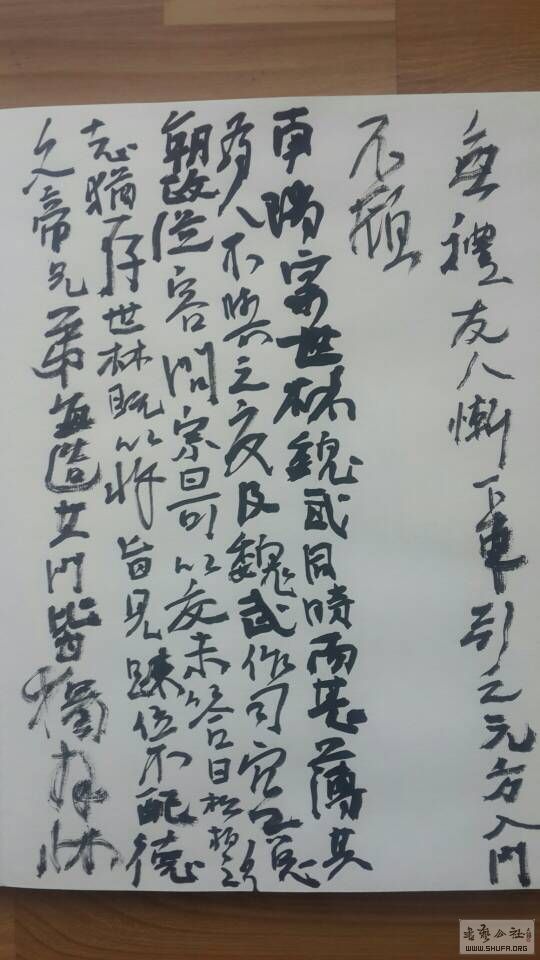 無禮友人慚下車引之元方入門
不顧
南陽宗世林魏武同時而甚薄其
為人不與之交及魏武作司空總
朝政從容問宗曰可以交未答曰松柏之
志猶存世林既以忤旨見疎位不配德
文帝兄弟每造其門皆獨拜床
书艺公社
WWW.SHUFA.ORG